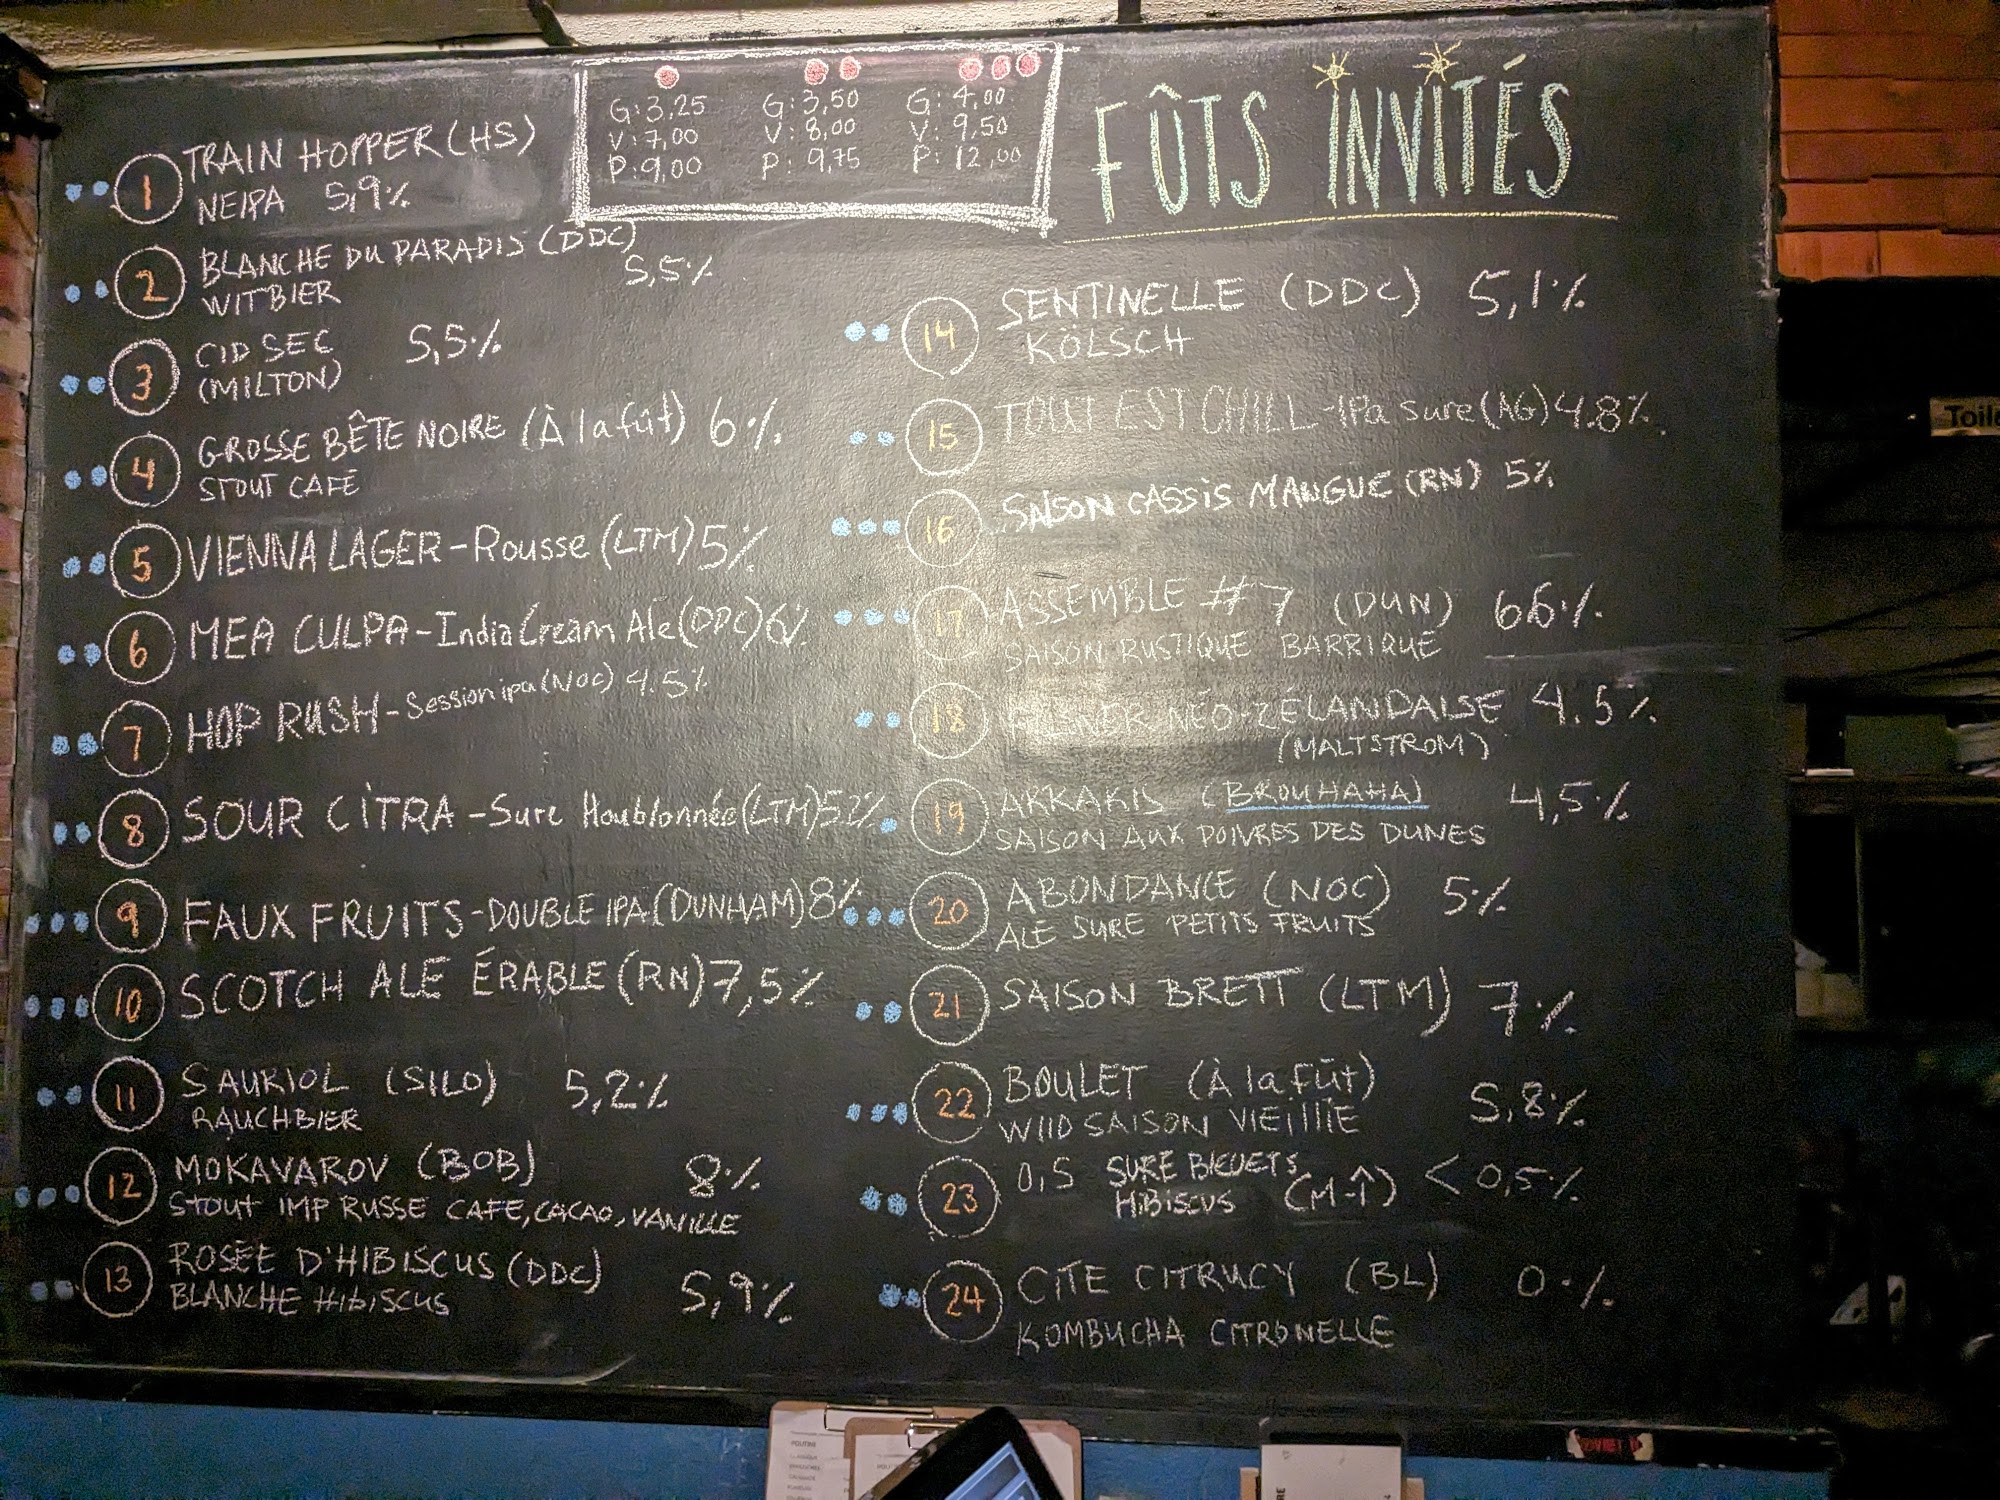 G: 3,25 G: 3,50 G: 4,00
V: 7,00 V: 8,00 V: 9,50
P: 9,00 P: 9,75 P: 12,00
FÛTS INVITÉS
1 TRAIN HOPPER (HS)
NEIPA 5,9%
2 BLANCHE DU PARADIS (DDC)
WITBIER 5,5%
3 CID SEC 5,5%
(MILTON)
4 GROSSE BÊTE NOIRE (À la fût) 6%
STOUT CAFÉ
5 VIENNA LAGER - Rousse (LTM) 5%
6 MEA CULPA - India Cream Ale (DDC) 6%
7 HOP RUSH - Session ipa (NOC) 4.5%
8 SOUR CITRA - Sure Houblonnée (LTM) 5.2%
9 FAUX FRUITS - DOUBLE IPA (DUNHAM) 8%
10 SCOTCH ALE ÉRABLE (RN) 7,5%
11 SAURIOL (SILO) 5,2%
RAUCHBIER
12 MOKAVAROV (BOB) 8%
STOUT IMP RUSSE CAFE, CACAO, VANILLE
13 ROSÉE D'HIBISCUS (DDC)
BLANCHE HIBISCUS 5,9%
14 SENTINELLE (DDC) 5,1%
KÖLSCH
15 TOUT EST CHILL - IPa sure (AG) 4.8%
16 SAISON CASSIS MANGUE (RN) 5%
17 ASSEMBLE #7 (DUN) 6.6%
SAISON RUSTIQUE BARRIQUE
18 NEO-ZÉLANDAISE 4.5%
(MALTSTROM)
19 ARRAKIS (BROUHAHA) 4,5%
SAISON AUX POIVRES DES DUNES
20 ABONDANCE (NOC) 5%
ALE SURE PETITS FRUITS
21 SAISON BRETT (LTM) 7%
22 BOULET (À la Fût)
WIID SAISON VIEIIIIE 5,8%
23 0,5 SURE BIEUETS
HIBISCUS (M-↑) < 0,5%
24 CITE CITRUCY (BL) 0%
KOMBUCHA CITRONELLE
POUTINE